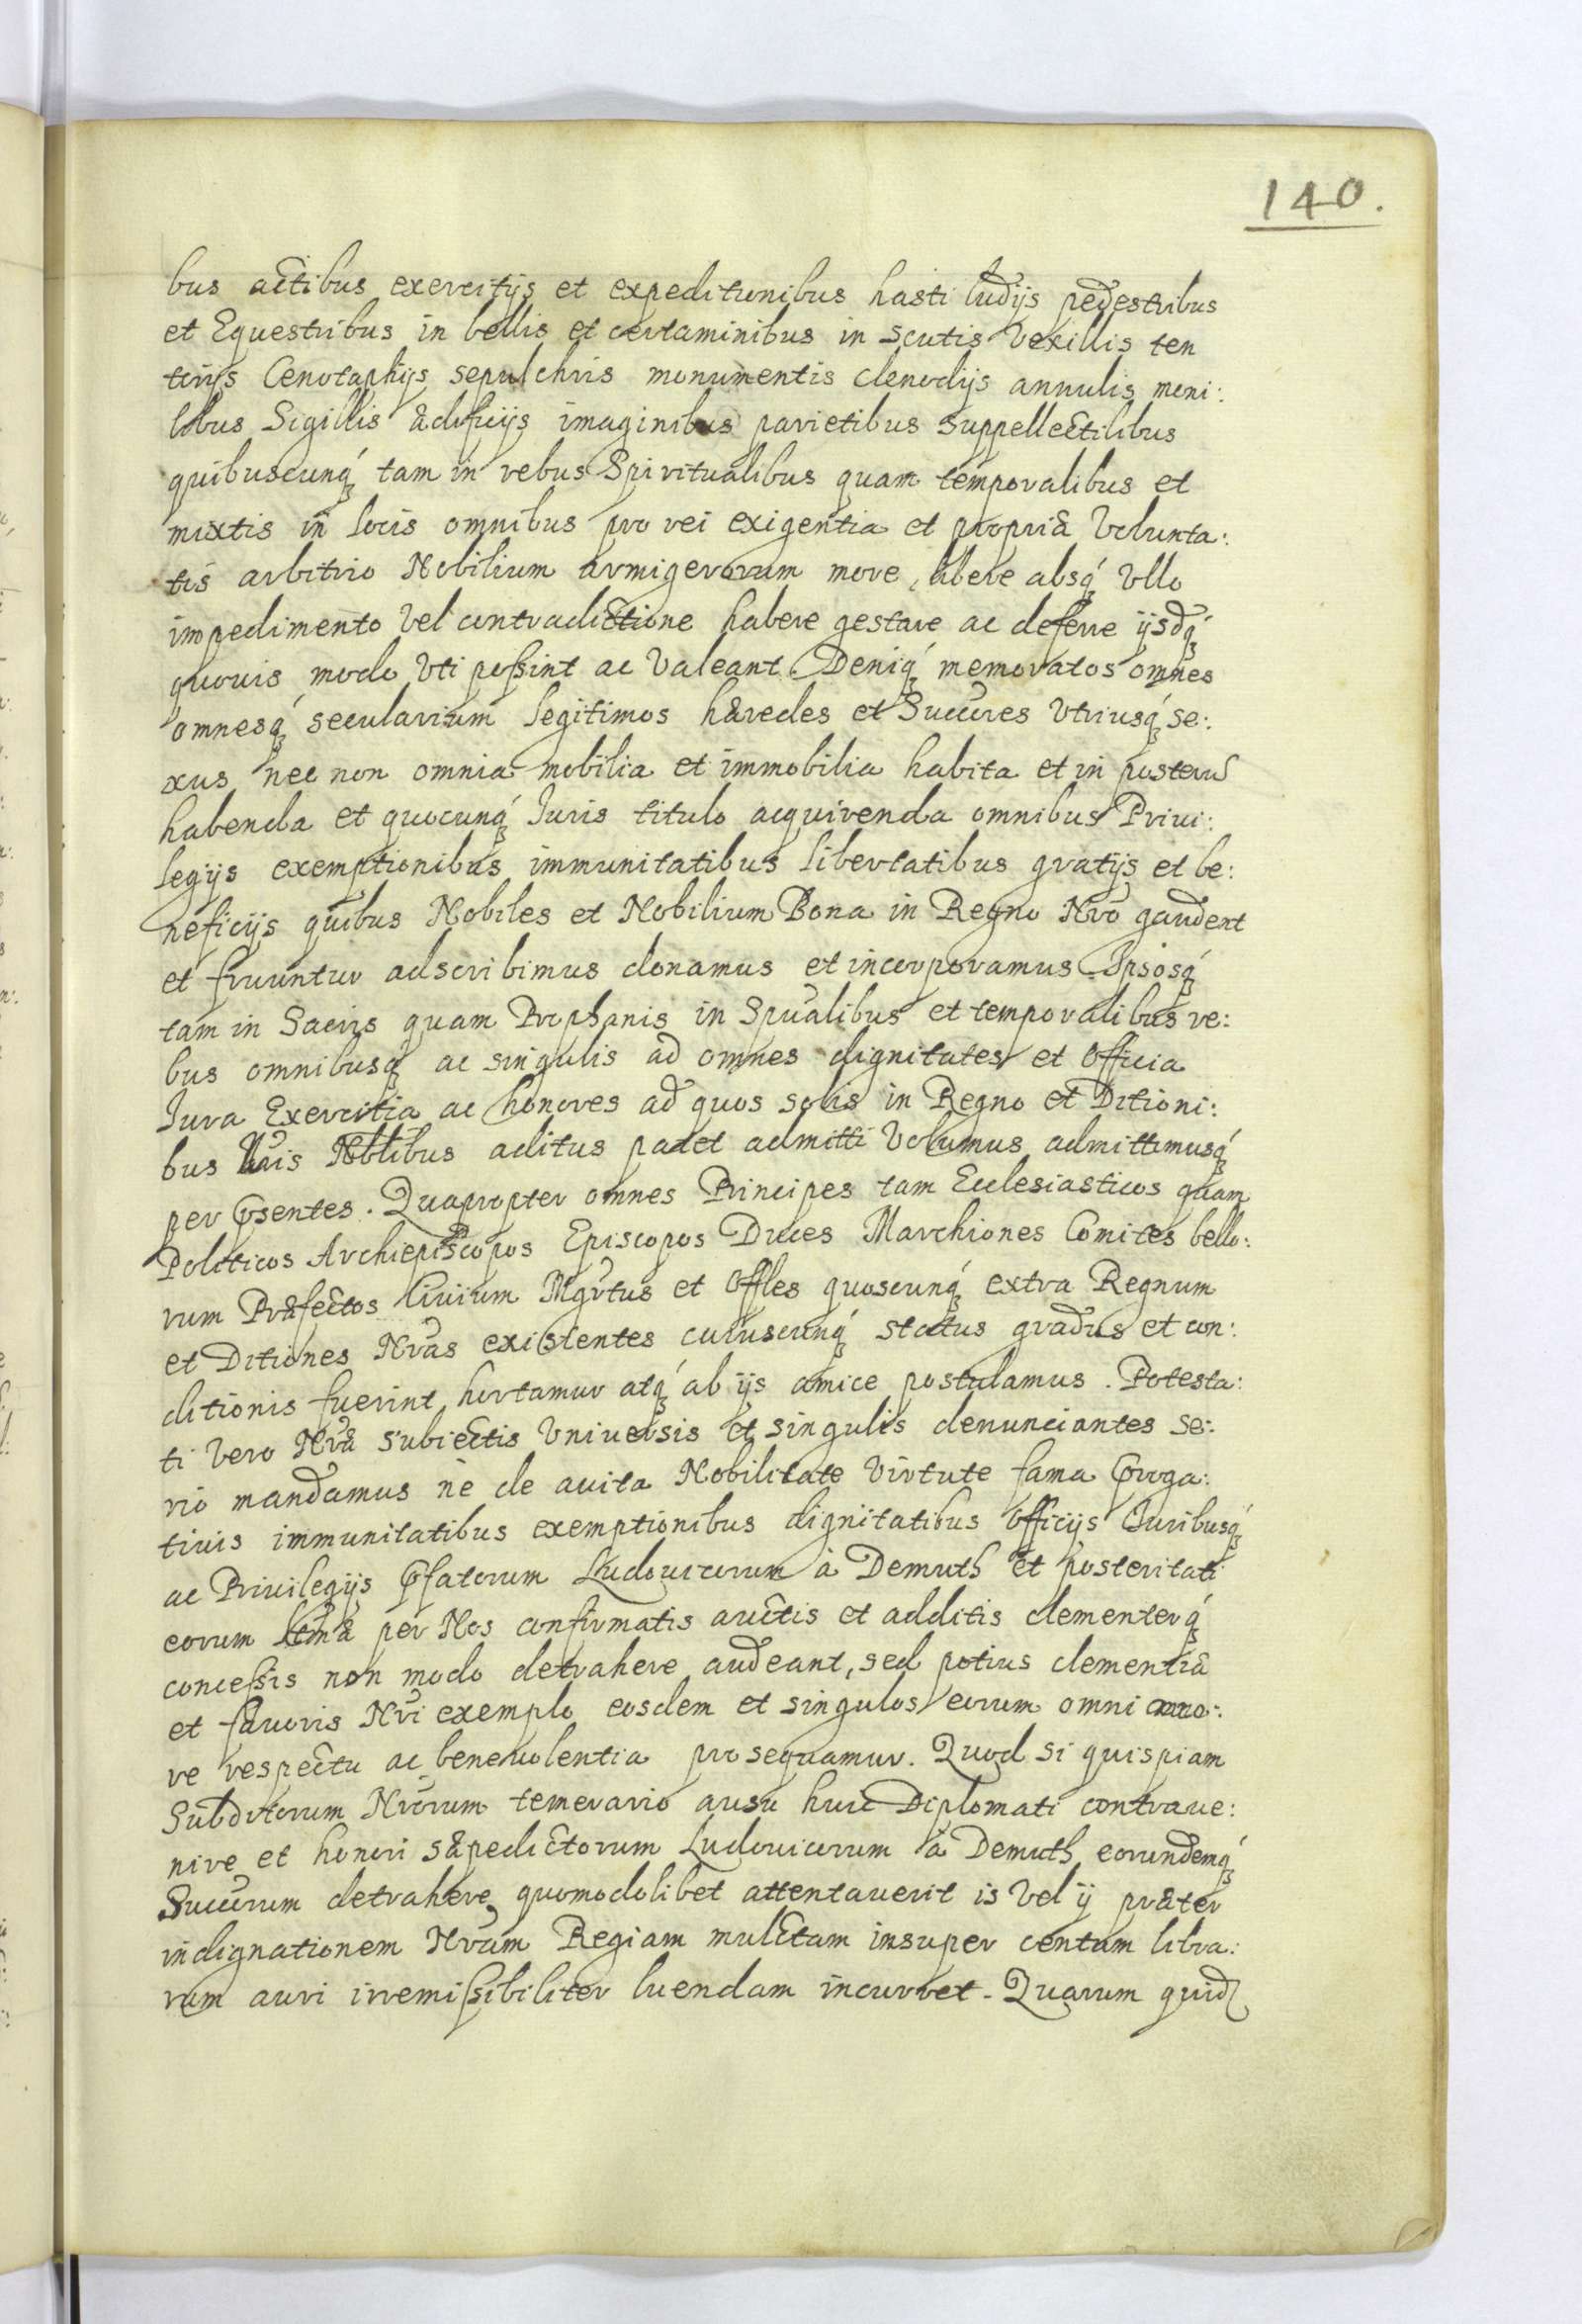 140.
bus actibus exercitijs et expeditionibus hasti ludijs pedestribus
et Equestribus in bellis et certaminibus in scutis Vexillis ten
torijs Cenotaphijs sepulchris monumentis clenodijs annulis moni:
libus Sigillis ædificijs imaginibus parietibus suppellectilibus
quibuscunq́ tam in rebus Spiritualibus quam temporalibus et
mixtis in locis omnibus pro rei exigentia et propriæ Volunta:
tis arbitrio Nobilium armigerorum more, libere absq́ Vllo
impedimento Vel contradictione habere gestare ac deferre ijsdq́
quouis modo Vti poßint ac Valeant. Deniq́ memoratos omnes
omnesq́ secularium legitimos hæredes et Succres Vtriusq́ se:
xus nec non omnia mobilia et immobilia habita et in posterū
habenda et quocunq́ Iuris titulo acquirenda omnibus Priui:
legijs exemptionibus immunitatibus libertatibus gratijs et be:
neficijs quibus Nobiles et Nobilium Bona in Regno Nro gaudent
et fruuntur adscribimus donamus et incorporamus Ipsosq́
tam in Sacris quam Prophanis in Spualibus et temporalibus re:
bus omnibusq́ ac singulis ad omnes dignitates et Officia
Iura Exercitia ac honores ad quos solis in Regno et Ditioni:
bus Nris Nobtibus aditus patet admitti Volumus admittimusq́
per Pṣentes. Quapropter omnes Principes tam Ecclesiasticos quam
Politicos Archiepiscopos Episcopos Duces Marchiones Comites bello:
rum Præfectos Ciuium Mgrtus et Offles quoscunq́ extra Regnum
et Ditiones Nras existentes cuiuscunq́ status gradus et con:
ditionis fuerint hortamur atq́ ab ijs amice postulamus. Potesta:
ti Vero Nræ subiectis Vniuersis et singulis denunciantes se:
rio mandamus ne de auita Nobilitate Virtute fama Proga:
tiuis immunitatibus exemptionibus dignitatibus Officijs Iuribusq́
ac Priuilegijs Pfatorum Ludouicorum à Demuth et posteritati
eorum per Nos confirmatis auctis et additis clementerq́
conceßis non modo detrahere audeant, sed potius clementiæ
et fauoris Nri exemplo eosdem et singulos eorum omni
re respectu ac beneuolentia prosequamur. Quod si quispiam
Subditorum Nrorum temerario ausu huic Diplomati contraue:
nire et honori sæpedictorum Ludouicorum à Demuth eorundemq́
Succrum detrahere quomodolibet attentauerit is Vel ij præter
indignationem Nram Regiam mulctam insuper centum libra:
rum auri irremißibiliter luendam incurret. Quarum quid